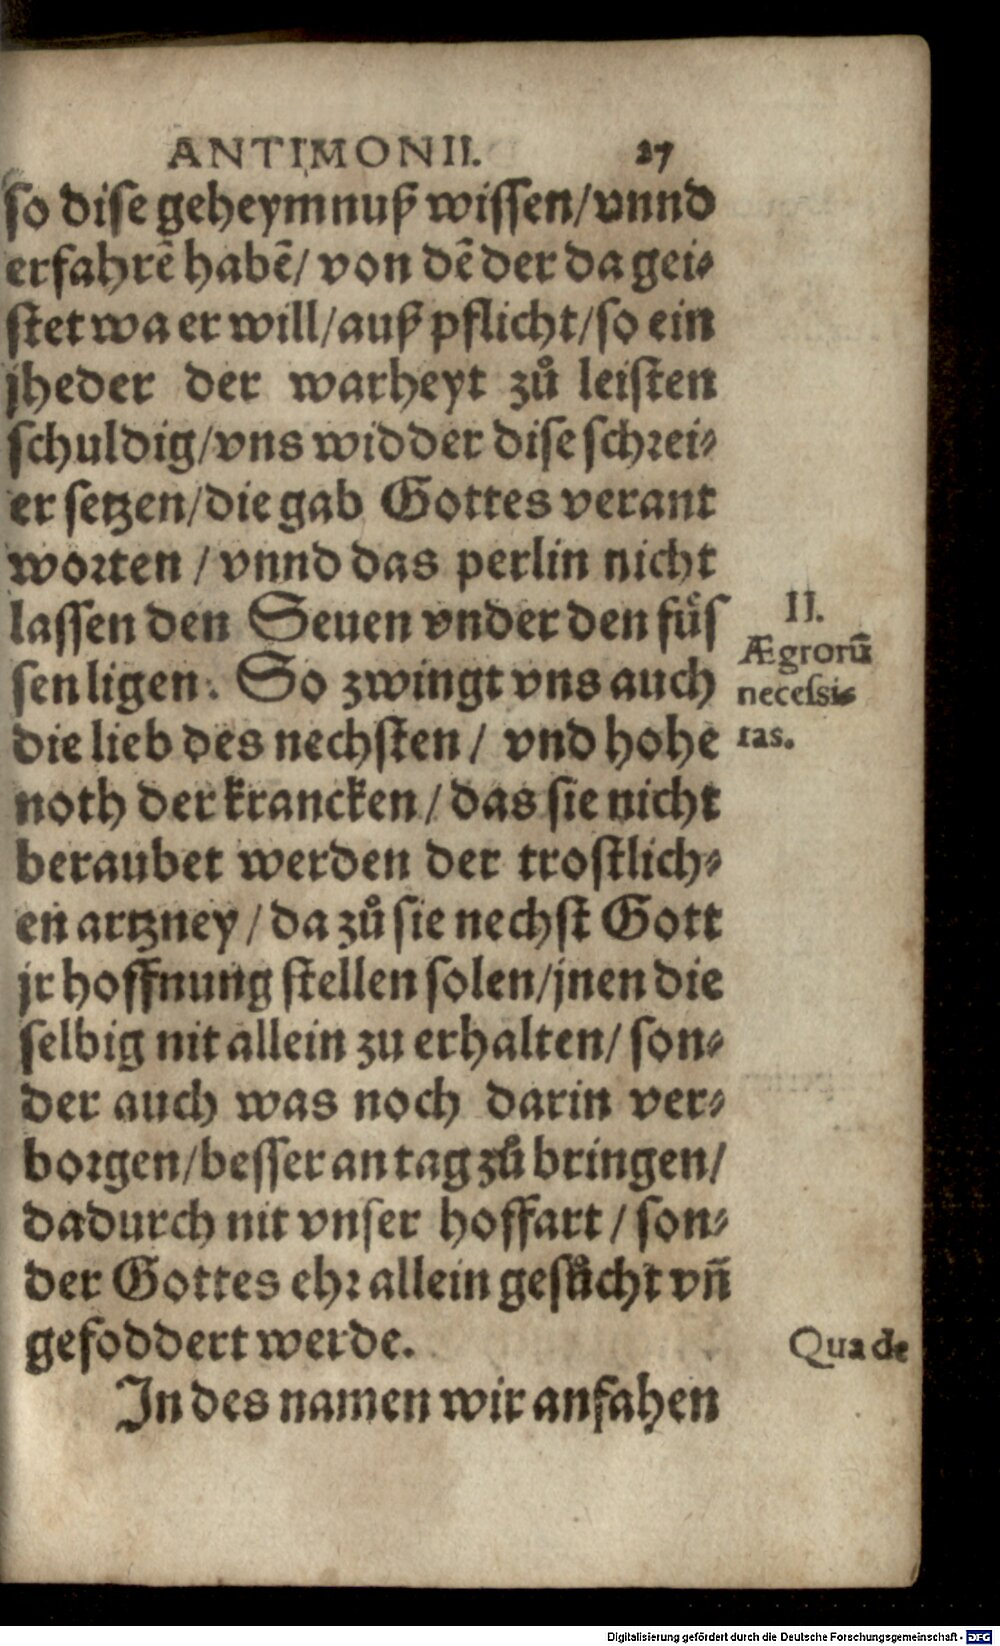 ANTIMONII. 27
so dise geheymnuß wissen/vnnd
erfahrẽ habẽ/ von dẽ der da gei⸗
stet wa er will/auß pflicht/so ein
jheder der warheyt zů leisten
schuldig/vns widder dise schrei⸗
er setzen/die gab Gottes verant
worten / vnnd das perlin nicht
lassen den Seuen vnder den fůs
sen ligen. So zwingt vns auch
die lieb des nechsten / vnd hohe
noth der krancken / das sie nicht
beraubet werden der trostlich⸗
en artzney / da zů sie nechst Gott
jr hoffnung stellen solen/jnen die
selbig nit allein zu erhalten/ son⸗
der auch was noch darin ver⸗
borgen/besser an tag zů bringen/
dadurch nit vnser hoffart / son⸗
der Gottes ehr allein gesůcht vñ
gefoddert werde.
In des namen wir anfahen
II.
Ægrorũ
necessi⸗
tas.
Qua de
Digitalisierung gefördert durch die Deutsche Forschungsgemeinschaft - DFG